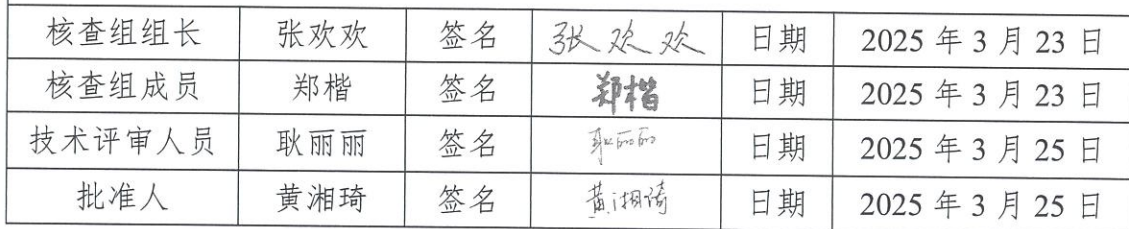 核查组组长 张欢欢 签名 张欢欢 日期 2025 年 3 月 23 日
核查组成员 郑楷 签名 郑楷 日期 2025 年 3 月 23 日
技术评审人员 耿丽丽 签名 耿丽丽 日期 2025 年 3 月 25 日
批准人 黄湘琦 签名 黄湘琦 日期 2025 年 3 月 25 日